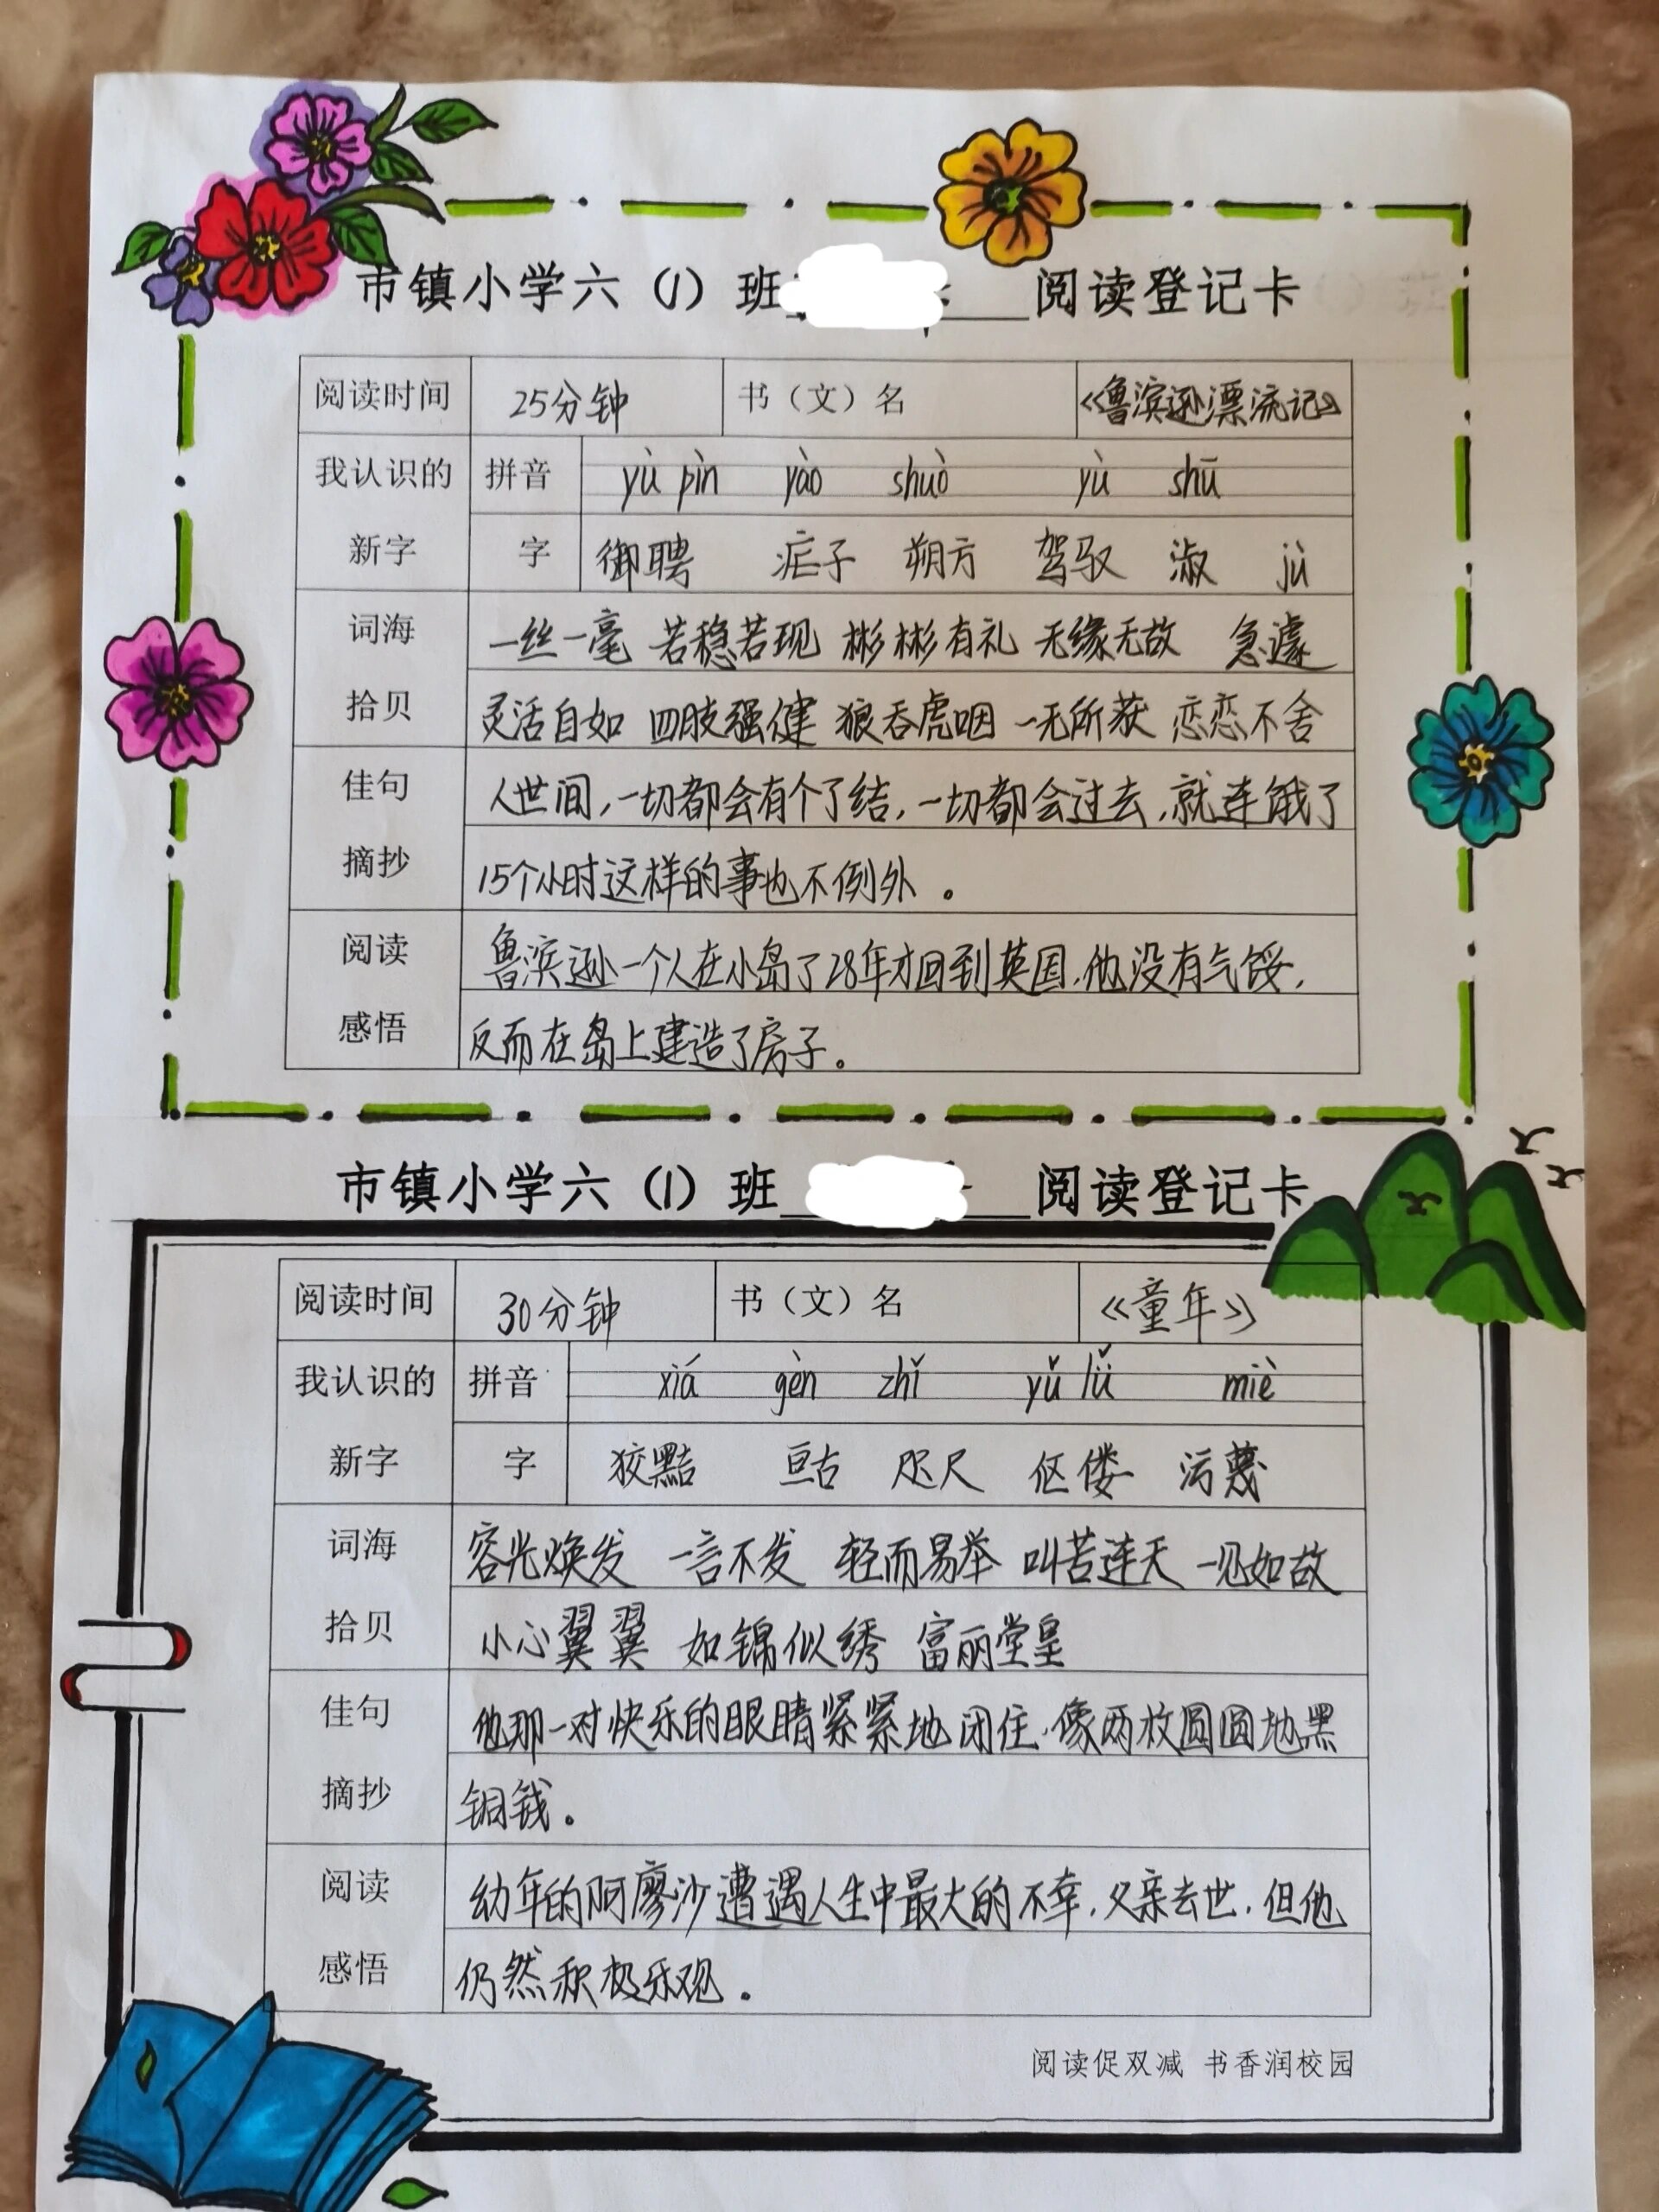 市镇小学六（1）班 阅读登记卡
阅读时间 25分钟 书（文）名 《鲁滨逊漂流记》
我认识的 拼音 yù pìn yào shuò yù shū
新字 字 御聘 疟子 朔方 驾驭 淑 jù
词海 一丝一毫 若稳若现 彬彬有礼 无缘无故 急遽
拾贝 灵活自如 四肢强健 狼吞虎咽 一无所获 恋恋不舍
佳句 人世间，一切都会有个了结，一切都会过去，就连饿了
摘抄 15个小时这样的事也不例外。
阅读 鲁滨逊一个人在小岛了28年才回到英国，他没有气馁，
感悟 反而在岛上建造了房子。
市镇小学六（1）班 阅读登记卡
阅读时间 30分钟 书（文）名 《童年》
我认识的 拼音 xiá gèn zhǐ yǔ lǚ miè
新字 字 狡黠 亘古 咫尺 伛偻 污蔑
词海 容光焕发 一言不发 轻而易举 叫苦连天 一见如故
拾贝 小心翼翼 如锦似绣 富丽堂皇
佳句 他那一对快乐的眼睛紧紧地闭住，像两枚圆圆地黑
摘抄 铜钱。
阅读 幼年的阿廖沙遭遇人生中最大的不幸，父亲去世，但他
感悟 仍然积极乐观。
阅读促双减 书香润校园